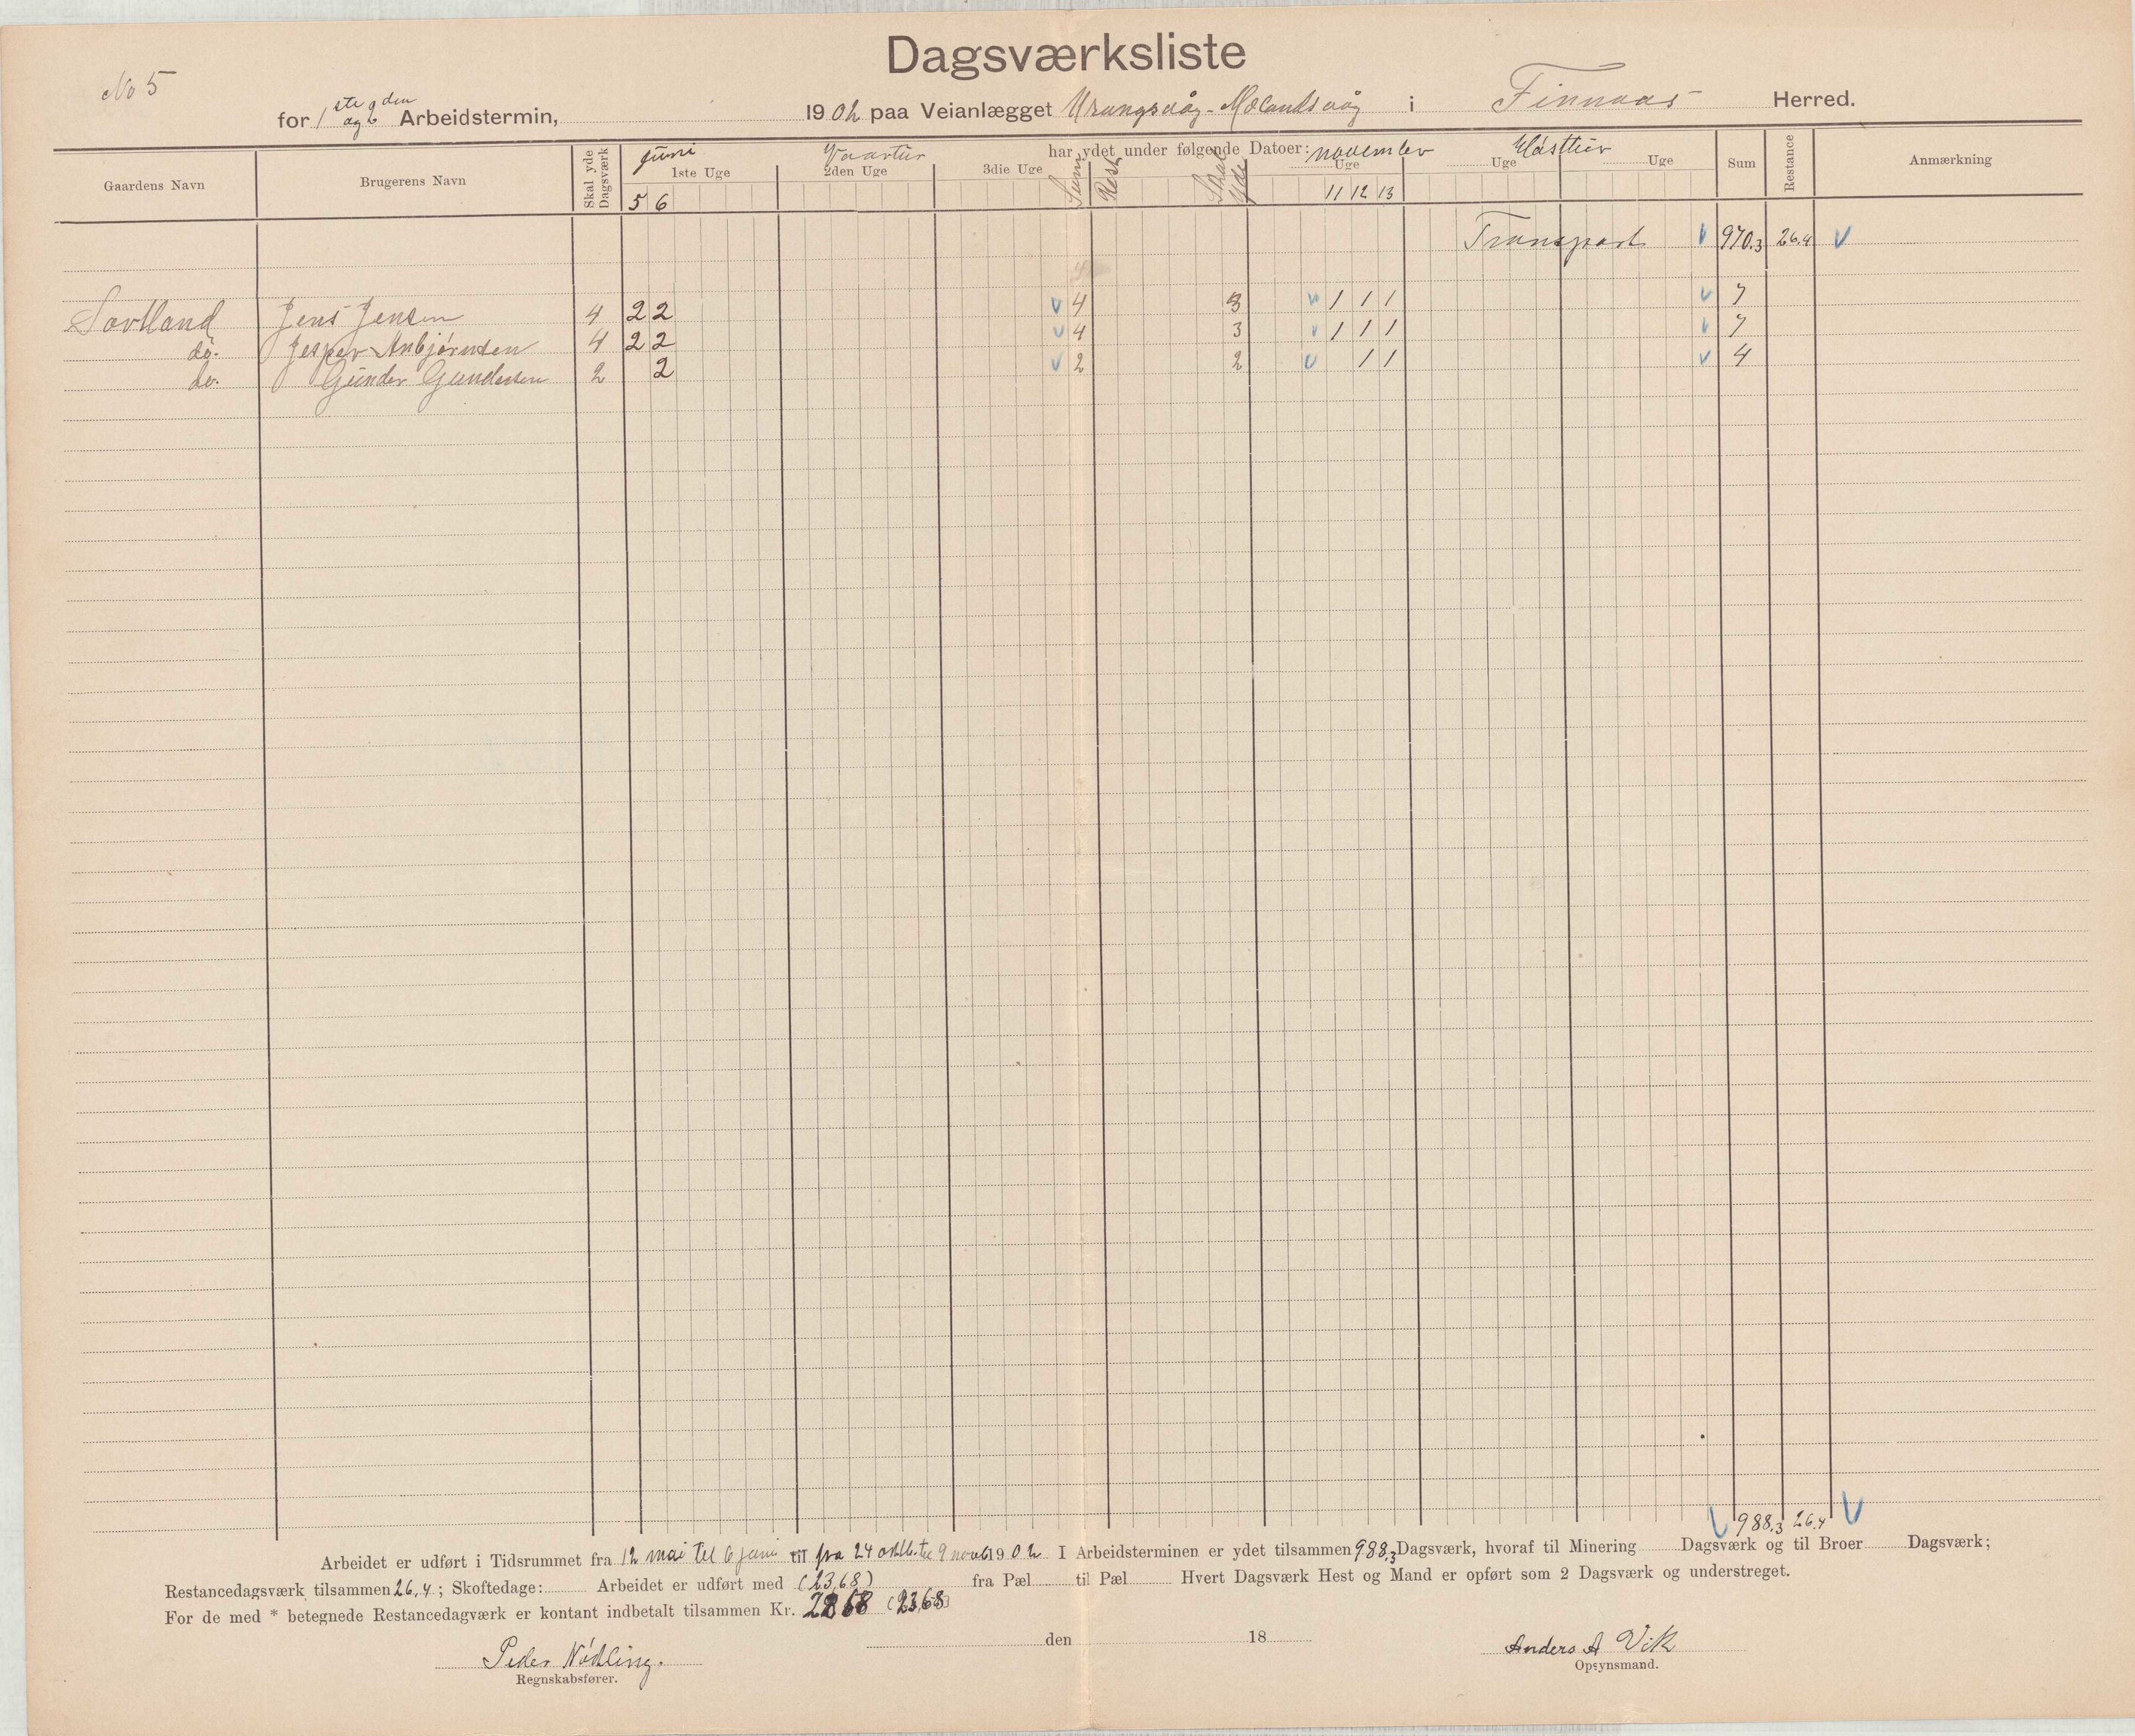 Dagsværksliste
No 5
for 1ste og 2den Arbeidstermin, 1902 paa Veianlægget Urangsvåg - Mælandsvåg i Finnaas Herred.
Gaardens Navn Brugerens Navn Skal yde Dagsværk har ydet under følgende Datoer: Sum Restance Anmærkning
juni Vaartur november Høsttur
1ste Uge 2den Uge 3die Uge Sum Rest Skal yde Uge Uge Uge
5 6 11 12 13
Transport 970.3 26.4
Jens Jensen 4 2 2 4 3 1 1 1 7
do. Jesper Anbjørnsen 4 2 2 4 3 1 1 1 7
do. Gunder Gundersen 2 2 2 2 1 1 4
988,3 26.4
Arbeidet er udført i Tidsrummet fra 12 mai til 6 juni til fra 24 oktb. til 9 novb 1902 I Arbeidsterminen er ydet tilsammen 988,3 Dagsværk, hvoraf til Minering Dagsværk og til Broer Dagsværk;
Restancedagsværk tilsammen 26,4; Skoftedage: Arbeidet er udført med (23,68) fra Pæl til Pæl Hvert Dagsværk Hest og Mand er opført som 2 Dagsværk og understreget.
For de med * betegnede Restancedagværk er kontant indbetalt tilsammen Kr. (23,68)
den 18
Peder Nødling. Anders A Vik
Regnskabsfører. Opsynsmand.